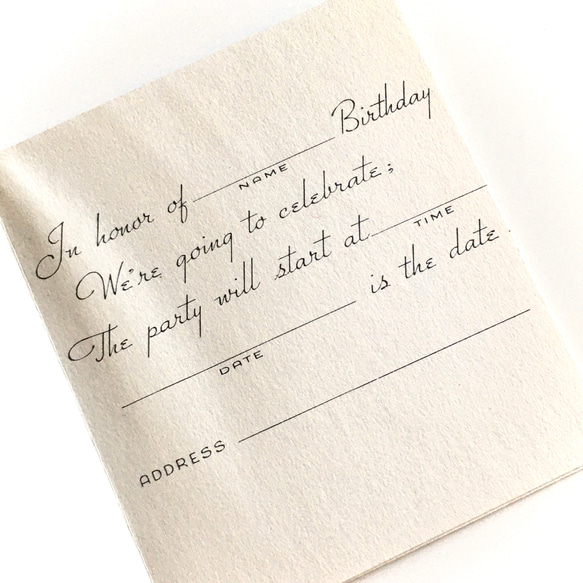 In honor of Birthday
NAME
We're going to celebrate;
The party will start at
TIME
is the date.
DATE
ADDRESS